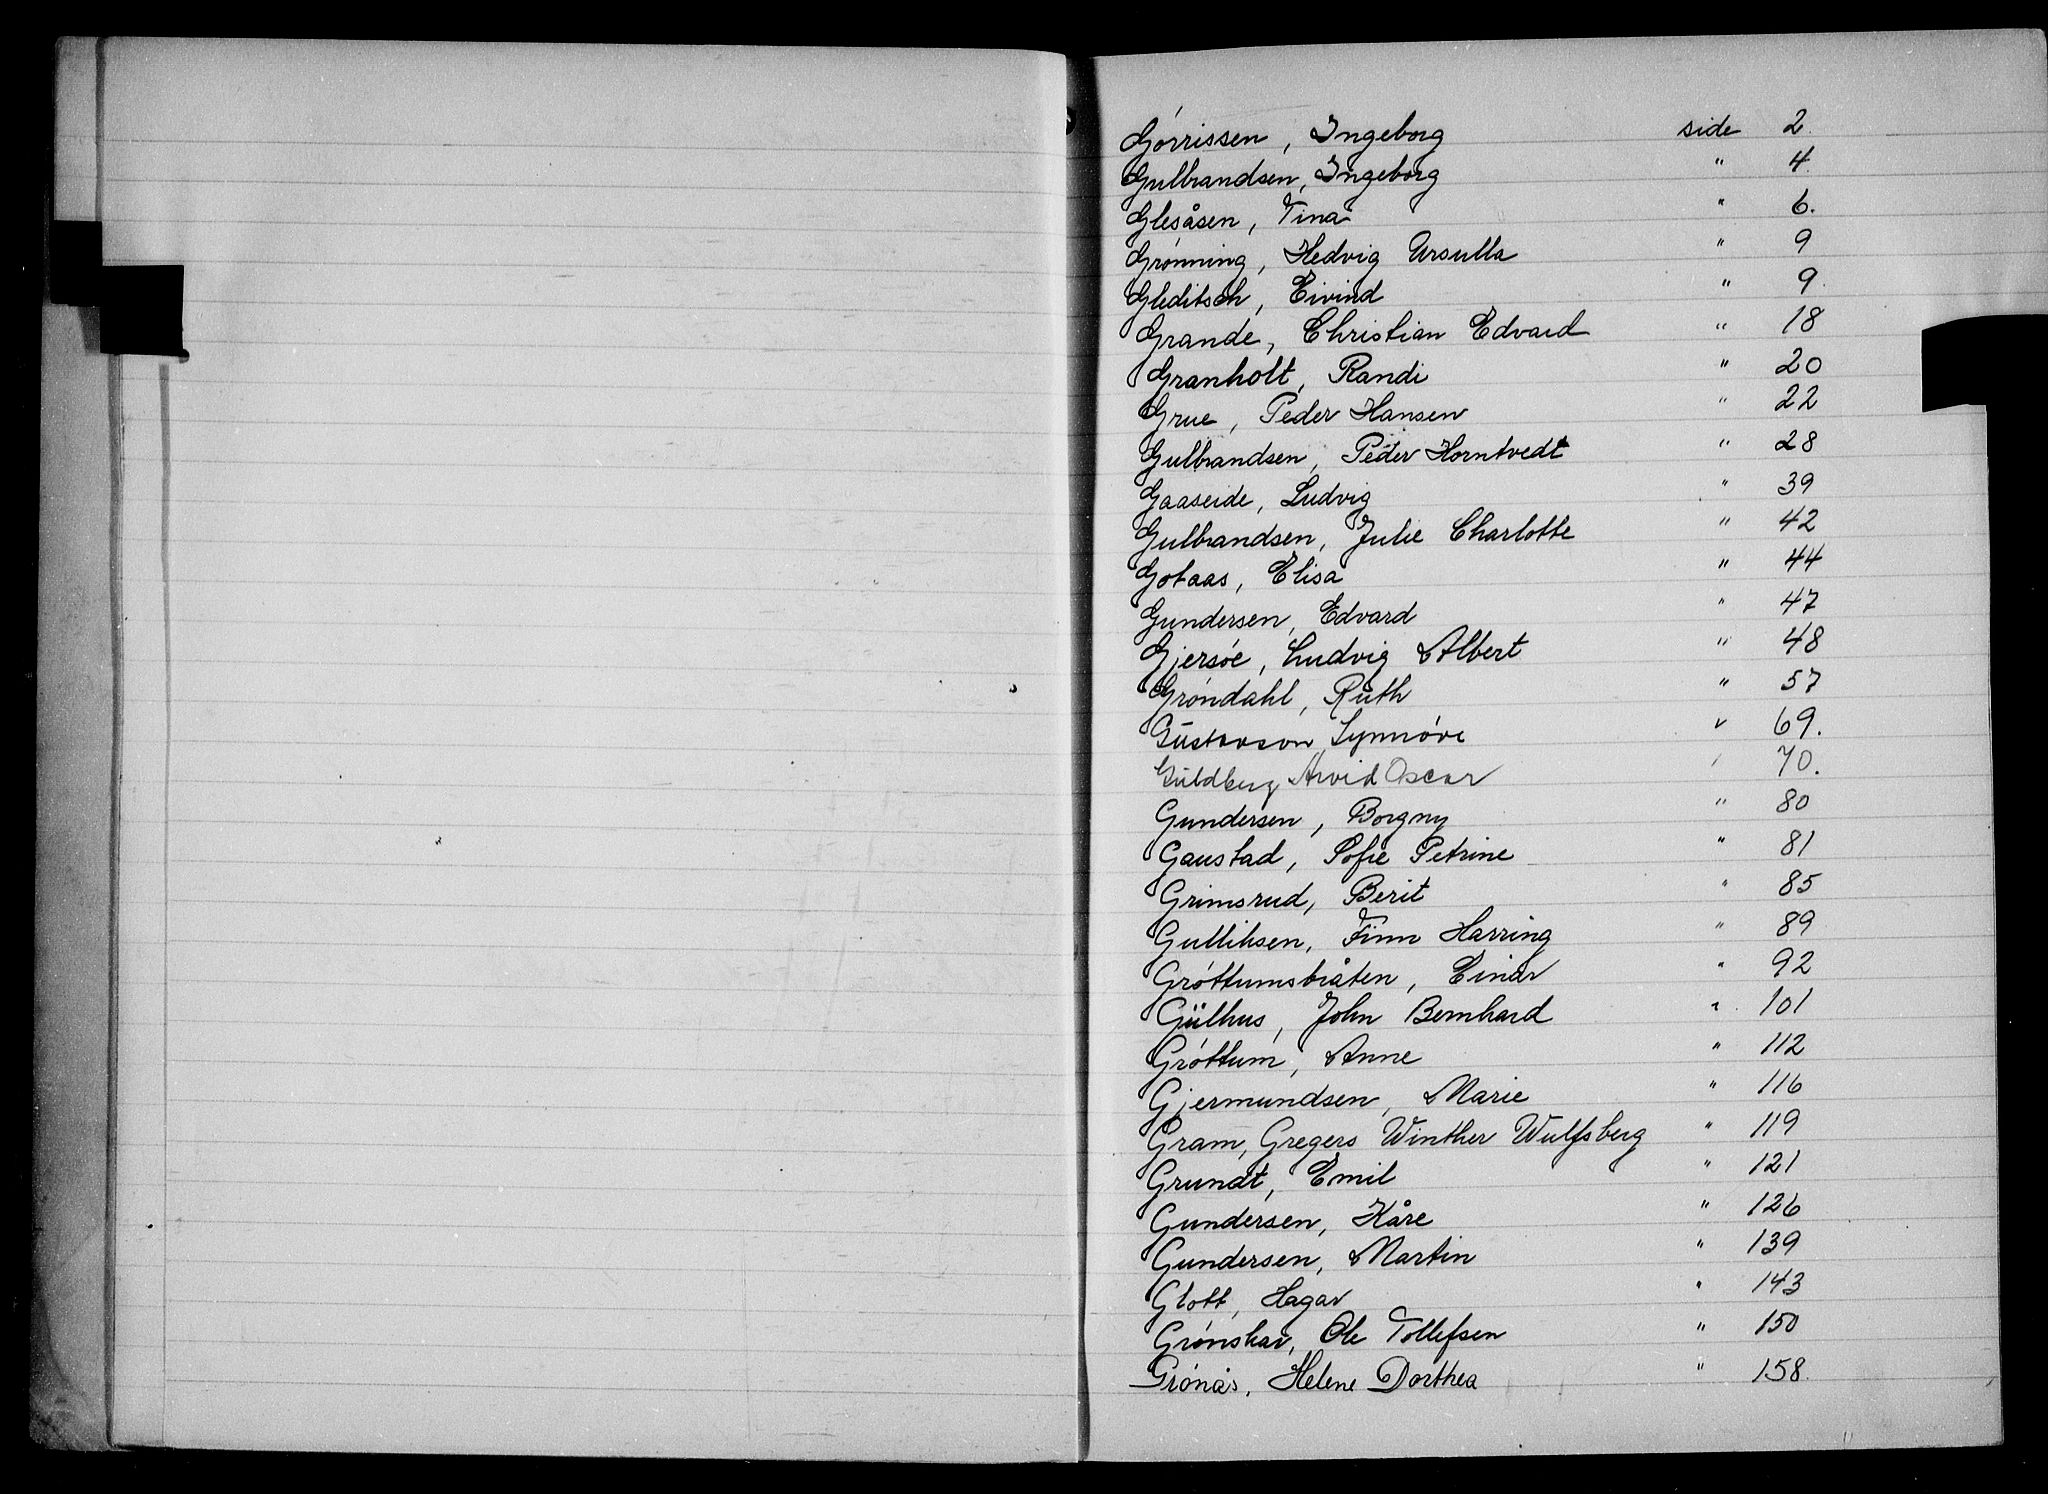 Gørrissen, Ingeborg side 2.
Gulbrandsen, Ingeborg " 4.
Glesåsen, Tina " 6.
Grønning, Hedvig Ursulla " 9
Gleditsch, Eivind " 9.
Grande, Christian Edvard " 18
Granholt, Randi " 20
Grue, Peder Hansen " 22
Gulbrandsen, Peder Horntvedt " 28
Gaaseide, Ludvig " 39
Gulbrandsen, Julie Charlotte " 42
Gotaas, Elisa " 44
Gundersen, Edvard " 47
Gjersøe, Ludvig Albert " 48
Grøndahl, Ruth " 57
Gustavson Synnøve " 69.
Guldberg Arvid Oscar " 70.
Gundersen, Borgny " 80
Gaustad, Sofie Petrine " 81
Grimsrud, Berit " 85
Gulliksen, Finn Harring " 89
Grøttumsbråten, Einar " 92
Gülhus, John Bernhard " 101
Grøttum, Anne " 112
Gjermundsen, Marie " 116
Gram, Gregers Winther Wulfsberg " 119
Grundt, Emil " 121
Gundersen, Kåre " 126
Gundersen, Martin " 139
Glott, Hagar " 143
Grønskar, Ole Tollefsen " 150
Grønås, Helene Dorthea " 158.